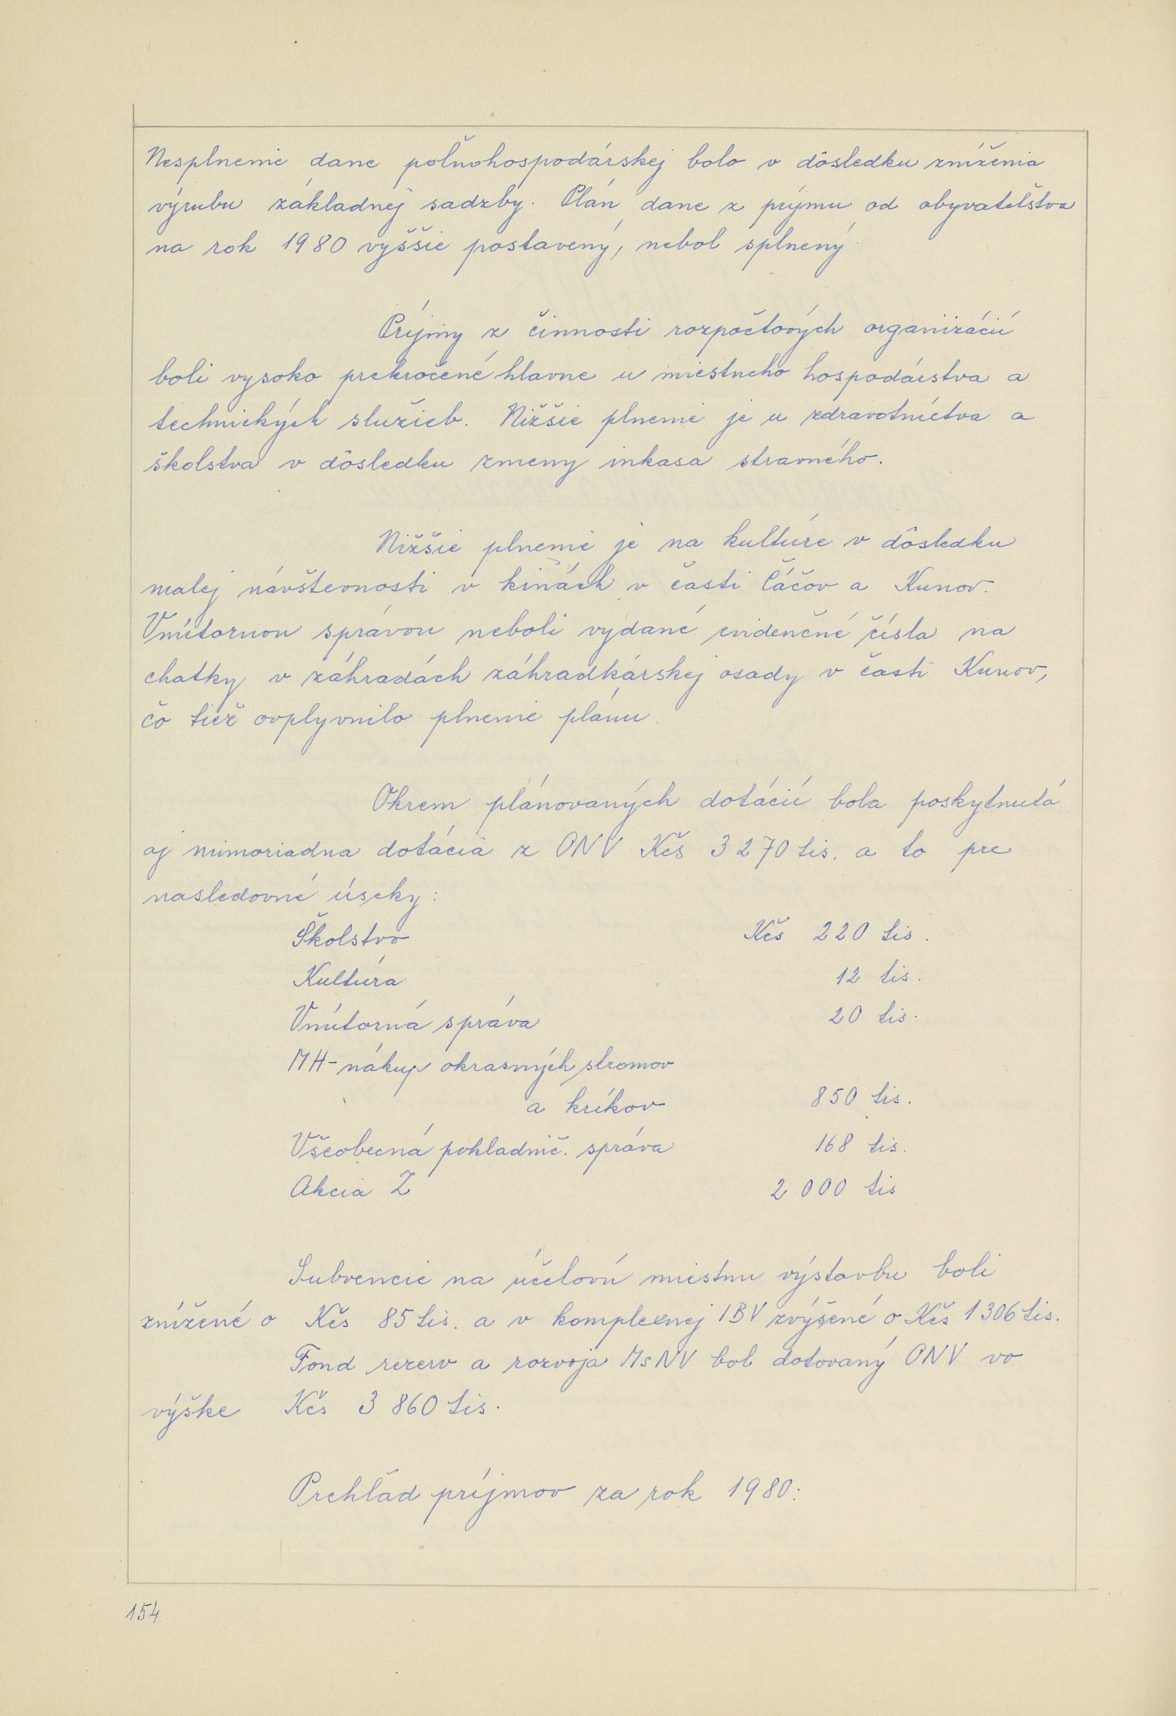 Nesplnenie dane poľnohospodárskej bolo v dôsledku zníženia
výrubu základnej sadzby. Plán dane z príjmu od obyvateľstva
na rok 1980 vyššie postavený, nebol splnený.
Príjmy z činnosti rozpočtových organizácií
boli vysoko prekročené hlavne u miestneho hospodárstva a
technických služieb. Nižšie plnenie je u zdravotníctva a
školstva v dôsledku zmeny inkasa stravného.
Nižšie plnenie je na kultúre v dôsledku
malej návštevnosti v kinách v časti Čáčov a Kunov.
Vnútornou správou neboli vydané evidenčné čísla na
chatky v záhradách záhradkárskej osady v časti Kunov,
čo tiež ovplyvnilo plnenie plánu.
Okrem plánovaných dotácií bola poskytnutá
aj mimoriadna dotácia z ONV Kčs 3 270 tis. a to pre
nasledovné úseky:
Školstvo Kčs 220 tis.
Kultúra 12 tis.
Vnútorná správa 20 tis.
MH-nákup okrasných stromov
a kríkov 850 tis.
Všeobecná pokladnič. správa 168 tis.
Akcia Z 2 000 tis
Subvencie na účelovú miestnu výstavbu boli
znížené o Kčs 85 tis. a v komplexnej IBV zvýšené o Kčs 1 306 tis.
Fond rezerv a rozvoja MsNV bol dotovaný ONV vo
výške Kčs 3 860 tis.
Prehľad príjmov za rok 1980:
154